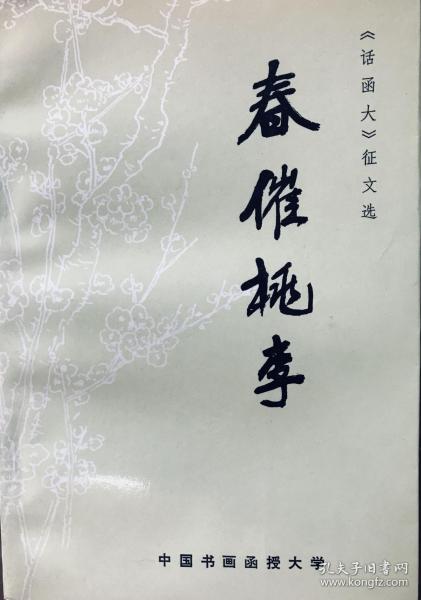 《话函大》征文选
春催桃李
中国书画函授大学
孔夫子旧书网
kongfz.com